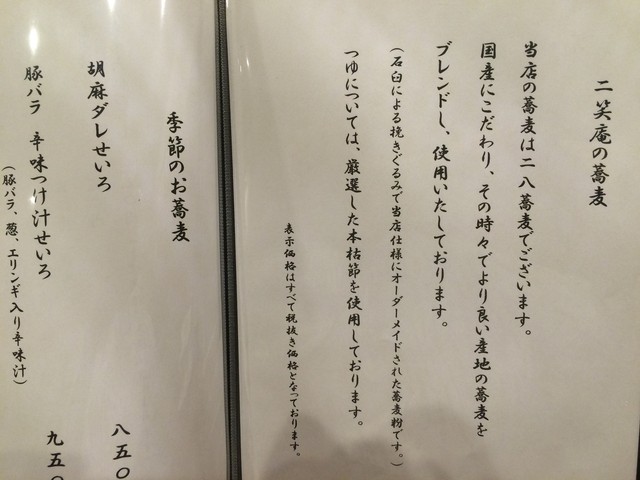 二笑庵の蕎麦
当店の蕎麦は二八蕎麦でございます。
国産にこだわり、その時々でより良い産地の蕎麦を
ブレンドし、使用いたしております。
(石臼による挽きぐるみで当店仕様にオーダーメイドされた蕎麦粉です。)
つゆについては、厳選した本枯節を使用しております。
表示価格はすべて税抜き価格となっております。
季節のお蕎麦
胡麻ダレせいろ 八五〇
豚バラ 辛味つけ汁せいろ 九五〇
(豚バラ、葱、エリンギ入り辛味汁)